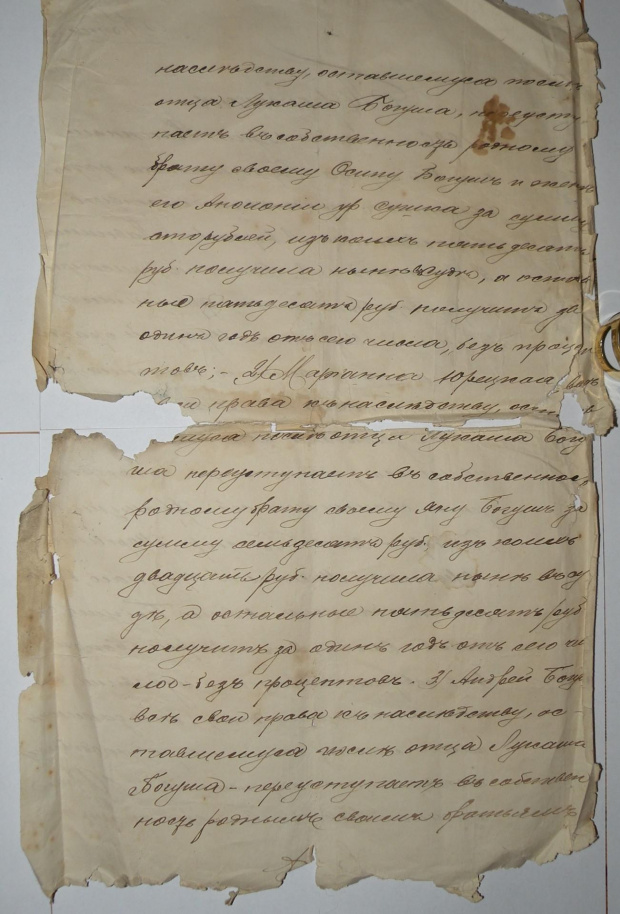 наслѣдству, оставшемуся послѣ
отца Лукаша Богуша, переусту
паетъ въ собственность родному
брату своему Осипу Богушъ и женѣ
его Аполоніи ур. Сушка за сумму
сто рублей, изъ коихъ пятьдесятъ
руб. получила нынѣ въ судѣ, а осталь
ные пятьдесятъ руб. получитъ за
одинъ годъ отъ сего числа, безъ процен
товъ; - 2/ Маріанна Юрецкая,
права къ наслѣдству, оста
муся послѣ отца Лукаша Богу
ша переуступаетъ въ собственность
родному брату своему Яну Богушъ за
сумму семьдесятъ руб., изъ коихъ
двадцать руб. получила нынѣ въ су
дѣ, а остальные пятьдесятъ руб
получитъ за одинъ годъ отъ сего чи
сла - безъ процентовъ. 3/ Андрей Богу
свои права къ наслѣдству, ос-
тавшемуся послѣ отца Лукаша
Богуша - переуступаетъ въ собствен
ность роднымъ своимъ братьямъ